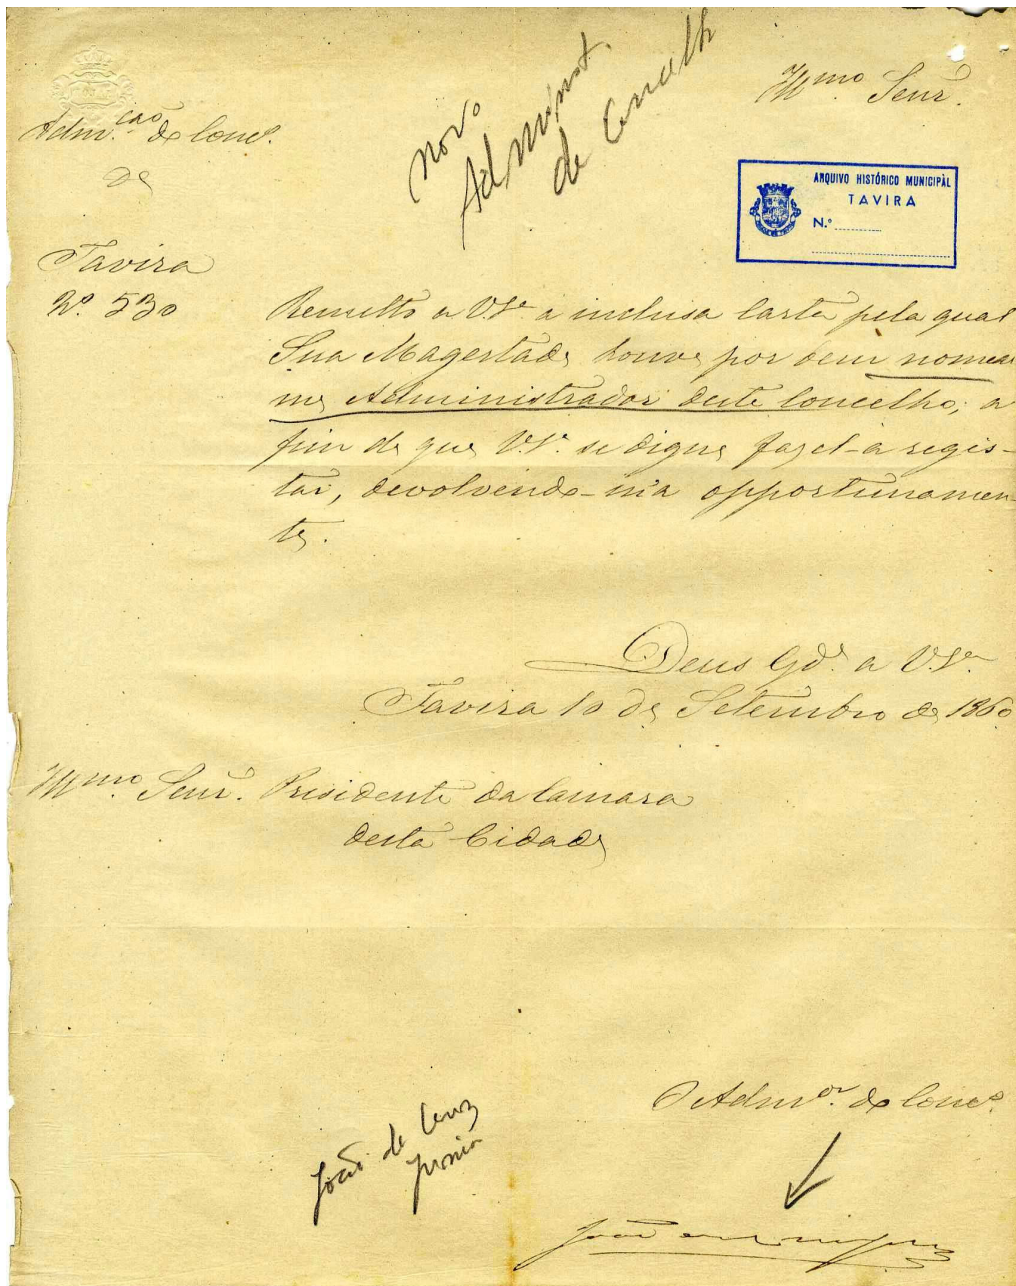 Novo
Administ.
de Concelh
Illmo Senr.
Adm.ção do Conco.
de
Tavira
Nº 530
ARQUIVO HISTÓRICO MUNICIPAL
TAVIRA
N.º
Remetto a V.Sª a inclusa Carta pela qual
Sua Magestade houve por bem nomear
me Administrador deste Concelho, a
fim de que V.Sª se digne fazel-a regis-
tar, devolvendo-m'a opportunamen
te.
Deus Gde a V.Sª
Tavira 10 de Setembro de 1860
Illmo. Senr. Presidente da Camara
desta Cidade
O Admor. do Conco.
João da Cruz
João